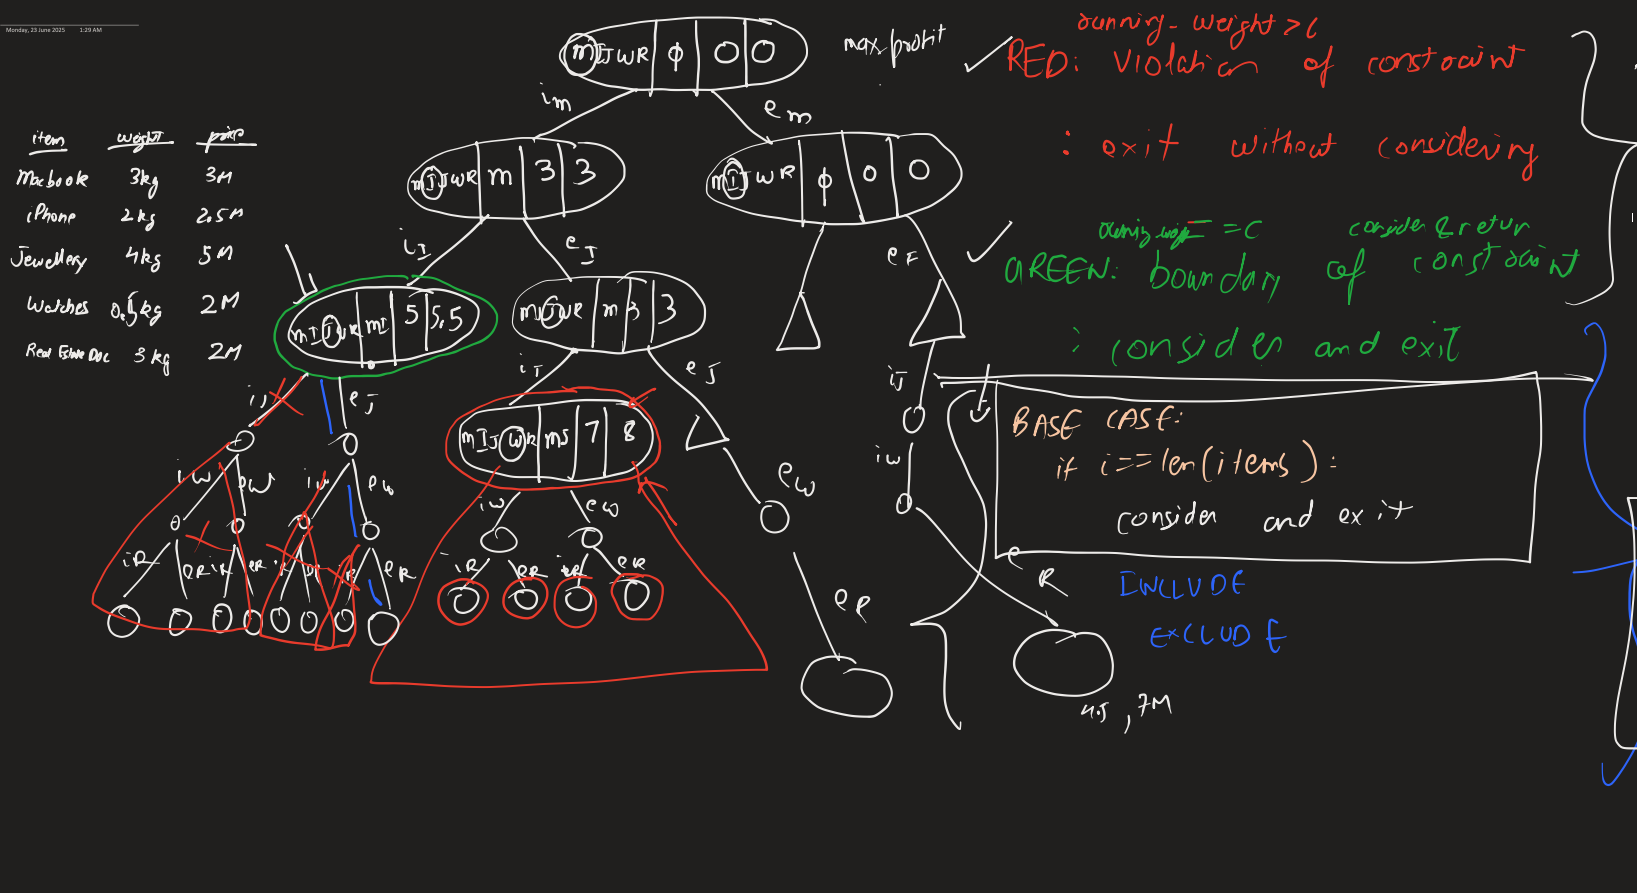 Monday, 23 June 2025 1:29 AM
item weight price
Macbook 3kg 3M
iPhone 2kg 2.5M
Jewellery 4kg 5M
Watches 0.5kg 2M
Real Estate Doc 3kg 2M
mIJWR ϕ 0 0
max profit
im em
mIJWR m 3 3
mIJWR ϕ 0 0
iI eI
eF
mIJWR mI 5 5.5
mIJWR m 3 3
iJ eJ
iJ eJ
iJ
mIJWR mJ 7 8
iW eW iW eW
iW eW
eW
iW
iR eR iR eR
eR
iR eR iR eR
eR
eR
4.5, 7M
running-weight > C
RED: Violation of constraint
: exit without considering
running weight == C consider & return
GREEN: boundary of constraint
: consider and exit
BASE CASE:
if i==len(items):
consider and exit
INCLUDE
EXCLUDE